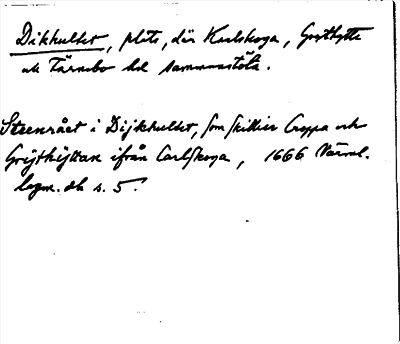 Dikhultet, plats, där Karlskoga, Grythytte
och Färnebo hd sammanstöta.
Steenrået i Dijkhultet, som skillier Croppa och
Grijthijttan ifrån Carlskoga, 1666 Värml.
lagm. db s. 5.